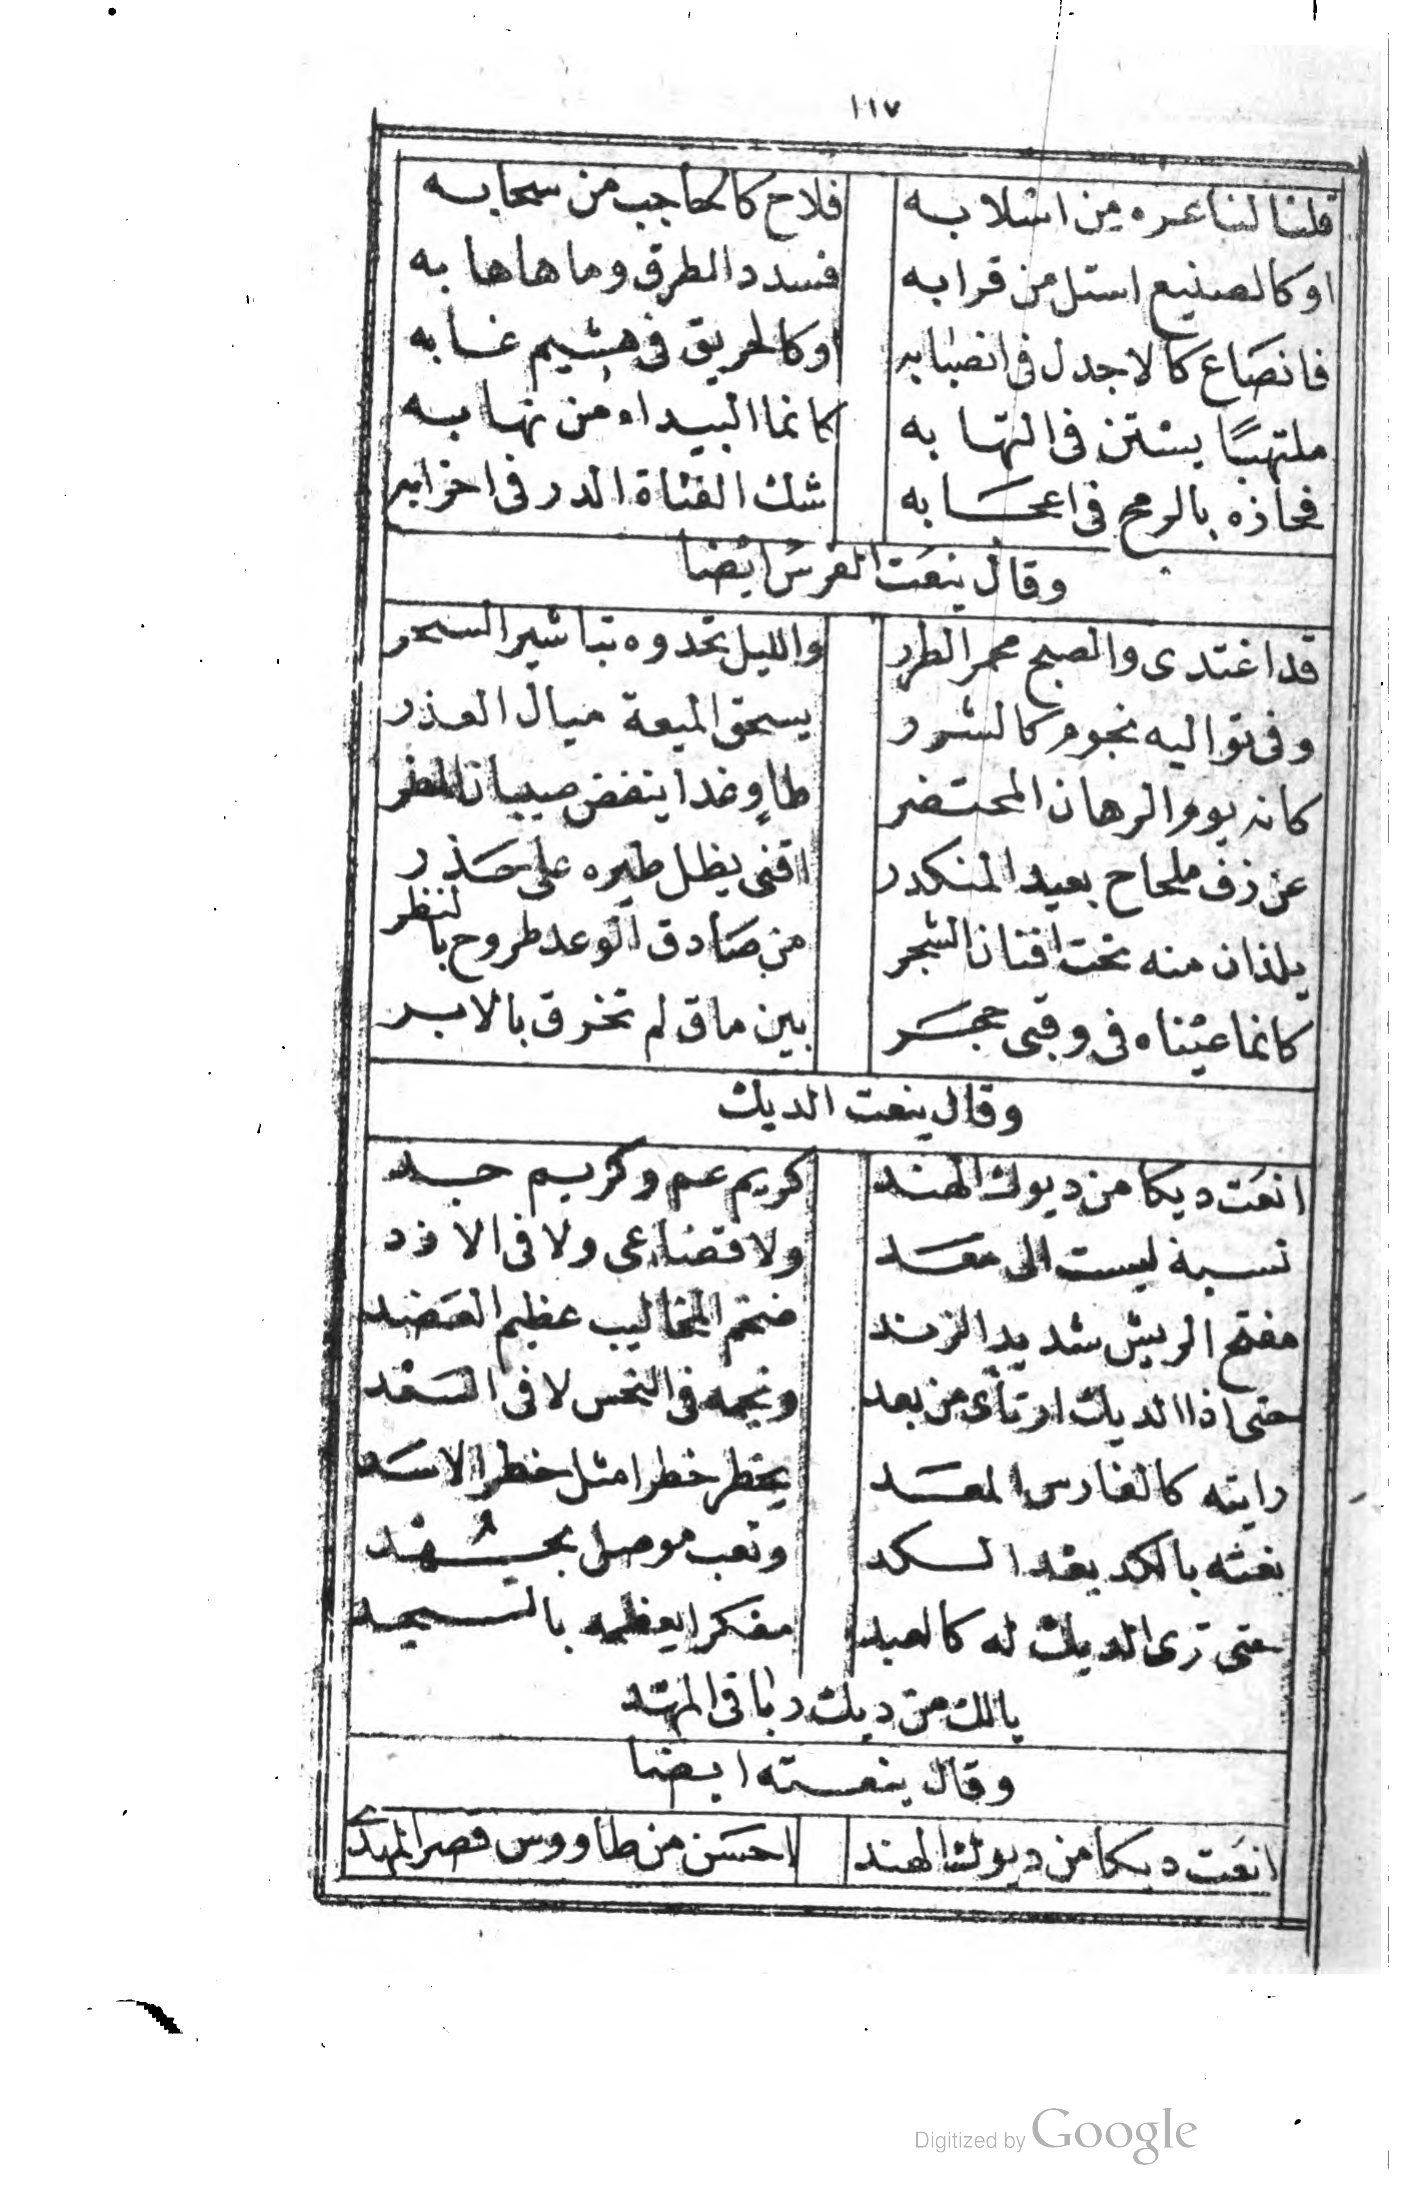 ١١٧
قلنا لنا عره من اسلابه فلاح كالحاجب من سحابه
اوكالصنيع استل من قرابه فسدد الطرق وما هاها به
فانصَاع كالاجدل فى انصبابه اوكالحريق فى هشيم غابه
ملتهبًا يستن فى التهابه كانما البيداء من نهابه
فحاذه بالرمح فى اعجَابه شك الفتاة الدر فى احزابه
وقال ينعت الفرس ايضا
قد اغتدى والصبح محمر الطرر والليل تحدوه تباشير السحر
وفى تواليه نجوم كالشرر بسحق الميعة ميال العذر
كانه يوم الرهان المحتضر طاوٍ غدا ينفض صيبان المطر
عن زف ملحاح بعيد المنكدر اقنى يظل طيره على حَذر
يلذن منه تحت افنان الشجر من صَادق الوعد طروح بالنظر
كانما عيناه فى وقبى حجَر بين ماق لم تخرق بالابر
وقال ينعت الديك
انعَت ديكا من ديوك الهند كريم عم وكريم جد
نسبة ليست الى معَد ولا قضاعى ولا فى الازد
مفتح الريش شديد الزند ضخم المخاليب عظيم العضد
حتى اذا الديك ارتأى من بعد ونجمه فى النحس لا فى السَعْد
رايته كالفارس المعَد يخطر خطرا مثل خطر الاسَد
بعثه بالكد بعد الكد وتعب موصل بجُهْد
حتى ترى الديك له كالعبد مفكرا يعظمه بالسجد
يالك من ديك ربا فى المهد
وقال ينعته ايضا
انعَت ديكا من ديوك الهند احسَن من طاووس قصر المهدى
Digitized by Google